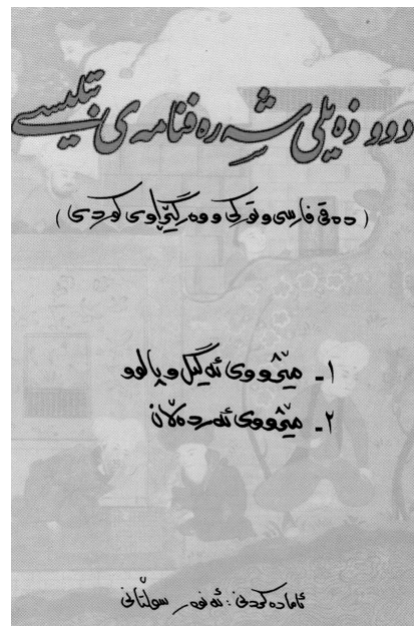 دوو ذەیلی شەرەفنامەی بتلیسی
(دەقی فارسی و تورکی و وەرگێڕاوی کوردی)
١ـ مێژووی ئەگیل و پالوو
٢ـ مێژووی ئەردەڵان
ئامادەکردنی: ئەنوەر سوڵتانی